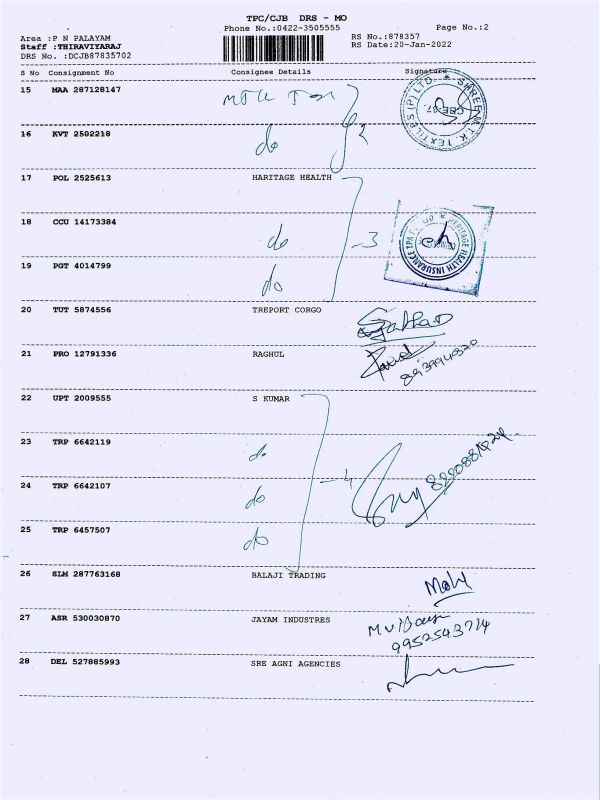 TPC/CJB DRS - MO
Phone No.:0422-3505555 Page No.:2
Area :P N PALAYAM RS No.:878357
Staff :THIRAVIYARAJ RS Date:20-Jan-2022
DRS No. :DCJB87835702
S No Consignment No Consignee Details Signature
15 MAA 287128147
16 KVT 2502218 do 2
17 POL 2525613 HARITAGE HEALTH
18 CCU 14173384 do 3
19 PGT 4014799 do
20 TUT 5874556 TREPORT CORGO
21 PRO 12791336 RAGHUL
22 UPT 2009555 S KUMAR
23 TRP 6642119 do
24 TRP 6642107 do 4
25 TRP 6457507 do
26 SLM 287763168 BALAJI TRADING
27 ASR 530030870 JAYAM INDUSTRES
9952543714
28 DEL 527885993 SRE AGNI AGENCIES